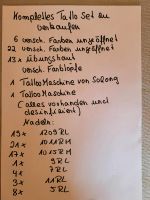 Komplettes Tatto Set zu
verkaufen
6 versch. Farben ungeöffnet
22 versch. Farben ungeöffnet
13 x Übungshaut
versch. Farbtöpfe
1 Tattoo Maschine von Solong
1 Tattoo Maschine
(alles vorhanden und
desinfiziert)
Nadeln:
19 x 1209RL
21 x 1011RM
17 x 1015RM
1 x 9RL
4 x 7RL
3 x 11RL
8 x 5RL